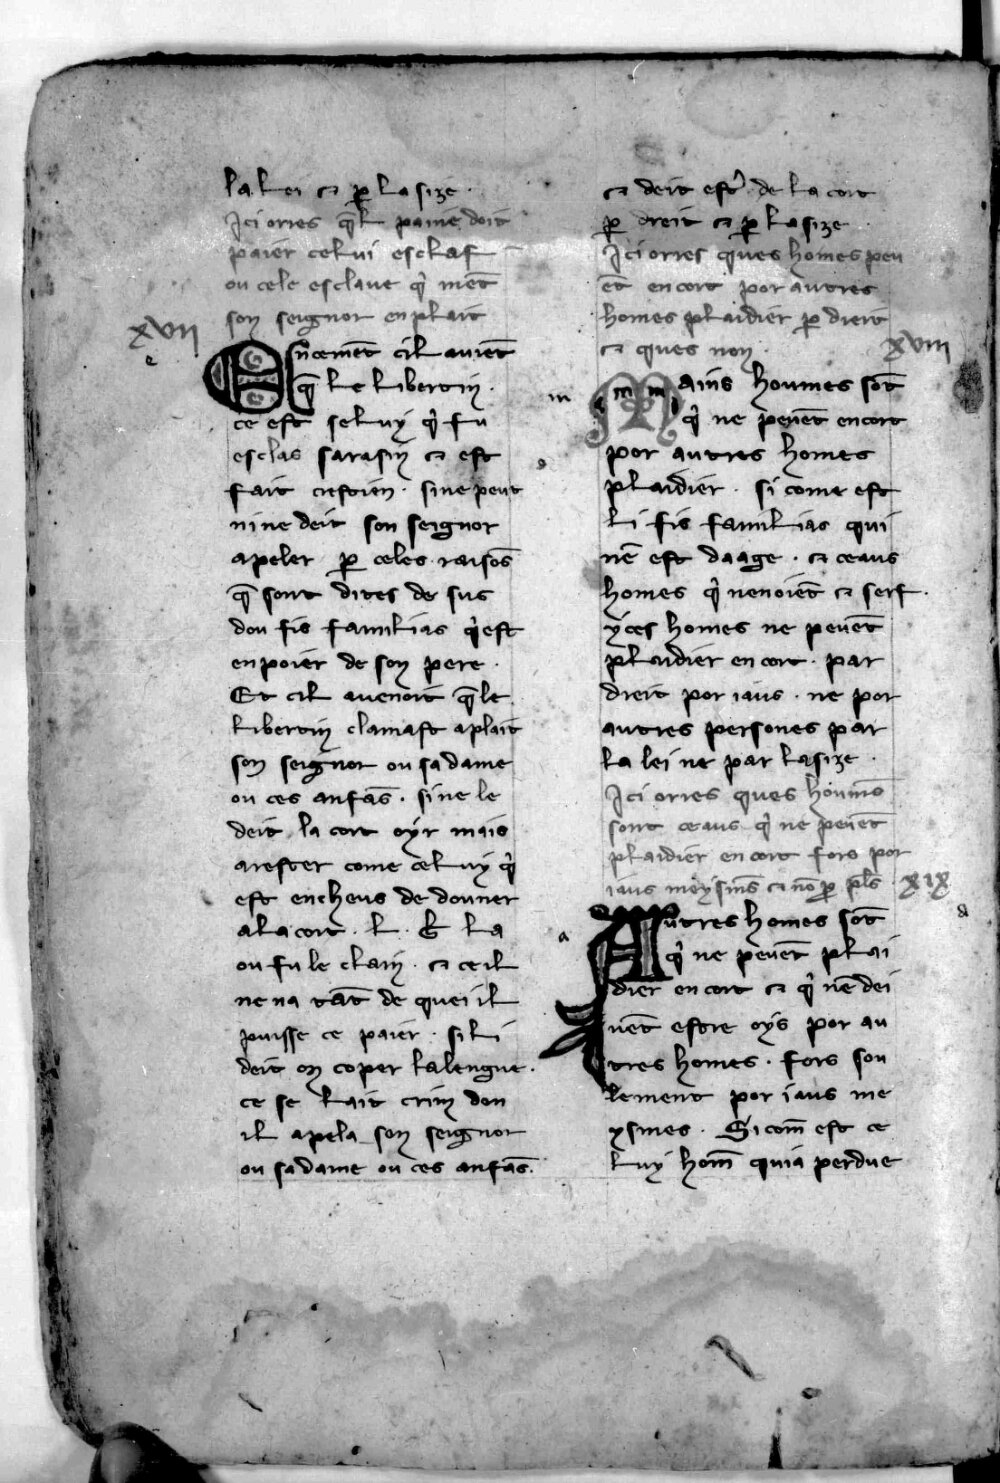 la lei ⁊ p̲ la size ·
Ici orres q̄l paine doit
paier celui esclaf
ou cele esclaue q̇ met̄
son seignor en plait
xvii
e
En̄cemēt cil auiēt
q̄ le libertin ·
ce est seluy q̇ fu
esclas sarasin ⁊ est
fait crestien · si ne peut
ni ne deit son seignor
apeler p̲ celes raisōs
q̄ sont dites de sus
dou fis familias q̇ est
en poier de son pere ·
Et cil auenoit q̄ le
libertin clamast a plait
son seignor ou sa dame
ou ces anfās · si ne le
deit la cort oyr mais
arester come celuy q̇
est encheus de douner
a la cort · l · & la
ou fu le clain · ⁊ ce il
ne na tāt de quei il
puisse ce paier · si li
deit on coper la lengue ·
ce se lait crim don
il apela son seignor
ou sa dame ou ces anfās ·
⁊ deit estr̄ de la cort
p̲ dreit ⁊ p̲ la size
Ici orres ques homes peu
ēt en cort por autres
homes plaidier p̲ dreit
⁊ ques non ·
xviii
m
Mains houmes sōt
q̇ ne peuēt en cort
por autres homes
plaidier · si come est
li fis familias qui
nē est daage · ⁊ ceaus
homes q̇ uenoiēt ⁊ serf ·
yces homes ne peuēt
plaidier en cort · par
dreit por iaus · ne por
autres persones par
la lei ne par la size ·
Ici orres ques houm̄s
sont ceaus q̇ ne peuēt
plaidier en cort fors por
iaus meysm̄s ⁊ nō p̲ pl̄s ·
xix
a
Autres homes sōt
q̇ ne peuēt plai
dier en cort ⁊ q̇ nē dei
uēt estre oys por au
tres homes · fors sou
lement por iaus me
ysmes · Si com̄ est ce
luy hom̄ qui a perdue